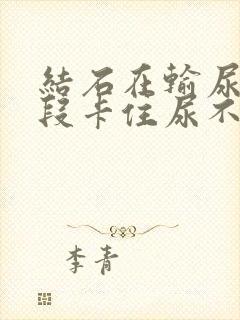 結石在輸尿
段卡住尿不
李青